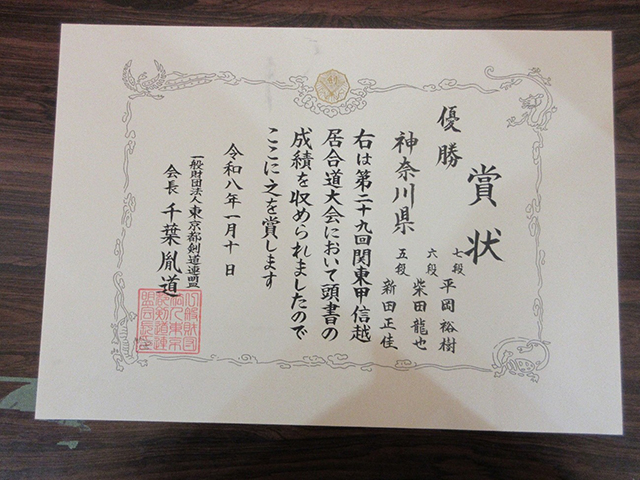 賞状
優勝
神奈川県
七段 平岡裕樹
六段 柴田龍也
五段 新田正佳
右は第二十九回関東甲信越
居合道大会において頭書の
成績を収められましたので
ここに之を賞します
令和八年一月十日
一般財団法人東京都剣道連盟
会長 千葉胤道